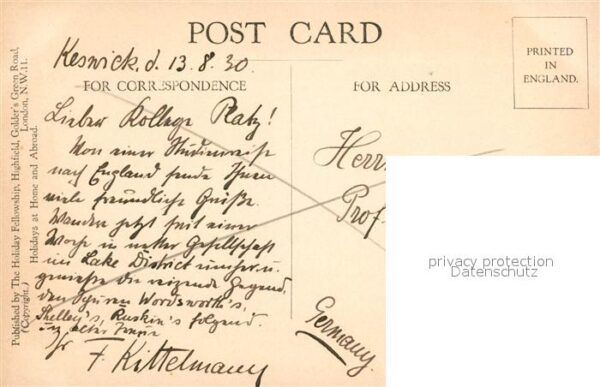 POST CARD
Keswick, d. 13.8.30
FOR CORRESPONDENCE
FOR ADDRESS
PRINTED
IN
ENGLAND.
Lieber Kollege Platz!
Von einer Studienreise
nach England sende Ihnen
viele freundliche Grüße.
Wander jetzt seit einer
Woche in netter Gesellschaft
im Lake District umher u.
genieße die reizende Gegend,
den Spuren Wordsworth's,
Shelley's, Ruskin's folgend.
in alter Treue
Ihr F. Kittelmann
Herrn
Prof.
Germany.
Published by The Holiday Fellowship, Highfield, Golder's Green Road,
(Copyright.) London, N.W.11.
Holidays at Home and Abroad.
privacy protection
Datenschutz